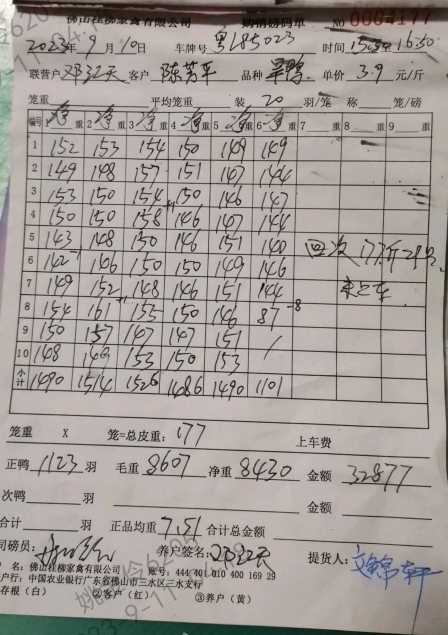 佛山桂柳家禽有限公司 购销磅码单 NO 0004177
2023年9月10日 车牌号 粤L85023 时间 16:50
联营户 邓 天 客户 陈芳平 品种 旱鸭 单价 3.9 元/斤
笼重 平均笼重 装 20 羽/笼 称 笼/磅
编号 1净重 2净重 3净重 4净重 5净重 6净重 7 重 8 重 9 重
1 152 153 154 150 149 149
2 149 148 157 151 147 144
3 153 150 154 150 146 147
4 150 150 158 146 147 144
5 143 148 150 146 151 140
6 142 146 150 150 149 146
7 149 152 148 146 151 144
8 154 161 155 150 146 87 -8
9 150 157 147 147 151 /
10 148 153 150 153
小计 1490 1514 1526 1486 1490 1101
笼重 X 笼=总皮重: 177 上车费
正鸭 1123 羽 毛重 8607 净重 8430 金额 32877
次鸭 羽 金额
合计 羽 正品均重 7.51 合计总金额
司磅员: 养户签名: 提货人:
名: 佛山桂柳家禽有限公司 账号: 444 401 010 400 169 29
户行: 中国农业银行广东省佛山市三水区三水支行
存根(白) ②客户(红) ③养户(黄)